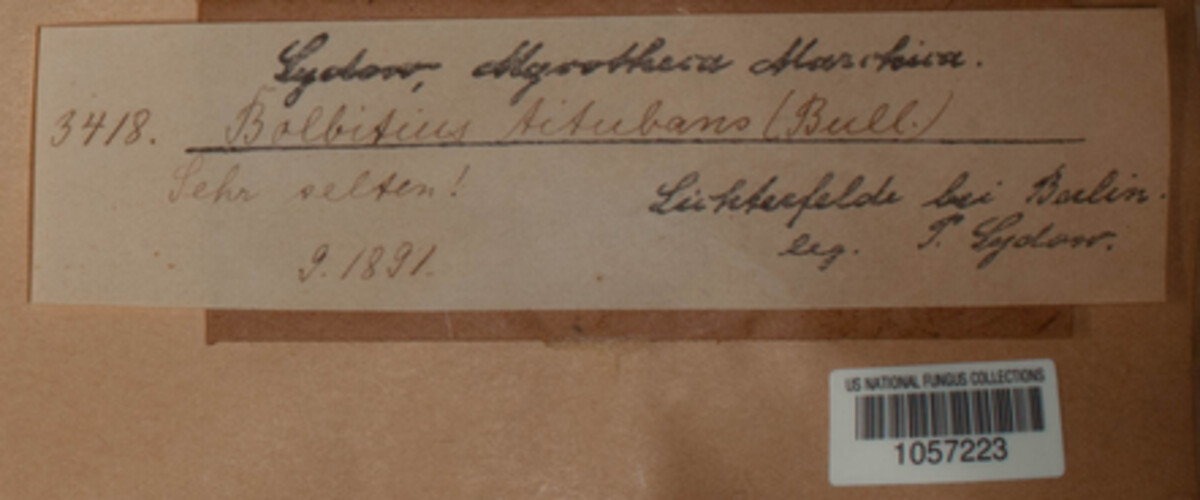 Sydow, Mycotheca Marchica.
3418. Bolbitius titubans (Bull.)
Sehr selten!
Lichterfelde bei Berlin.
9. 1891.
leg. P. Sydow.
US NATIONAL FUNGUS COLLECTIONS
1057223